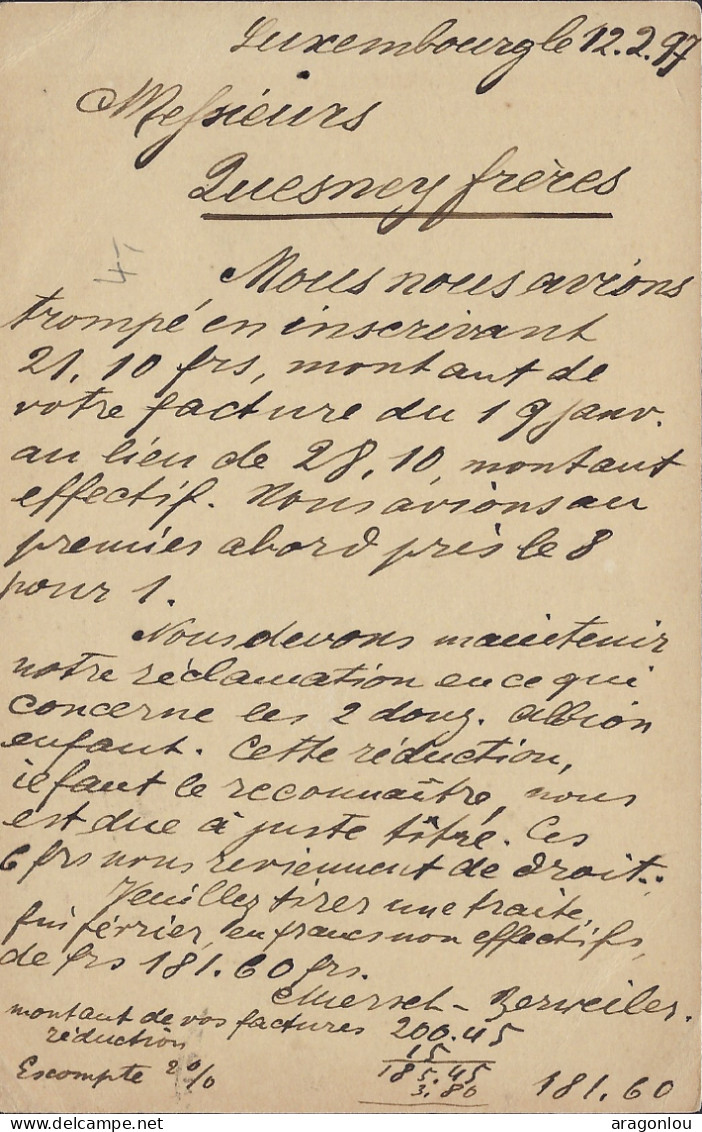 Luxembourg le 12.2.97
Messieurs
Quesney frères
Nous nous avions
trompé en inscrivant
21,10 frs, montant de
votre facture du 19 janv.
au lieu de 28,10, montant
effectif. Nous avions au
premier abord pris le 8
pour 1.
Nous devons maintenir
notre réclamation en ce qui
concerne les 2 douz. albion
enfant. Cette réduction,
il faut le reconnaître, nous
est due à juste titre. Ces
6 frs nous reviennent de droit.
Veuillez tirer une traite,
fin février, en francs non effectifs,
de frs 181.60 frs.
Mersch-Berweiler.
montant de vos factures 200.45
réduction 15
185.45
Escompte 2% 3.80 181.60
delcampe.net
aragonlou